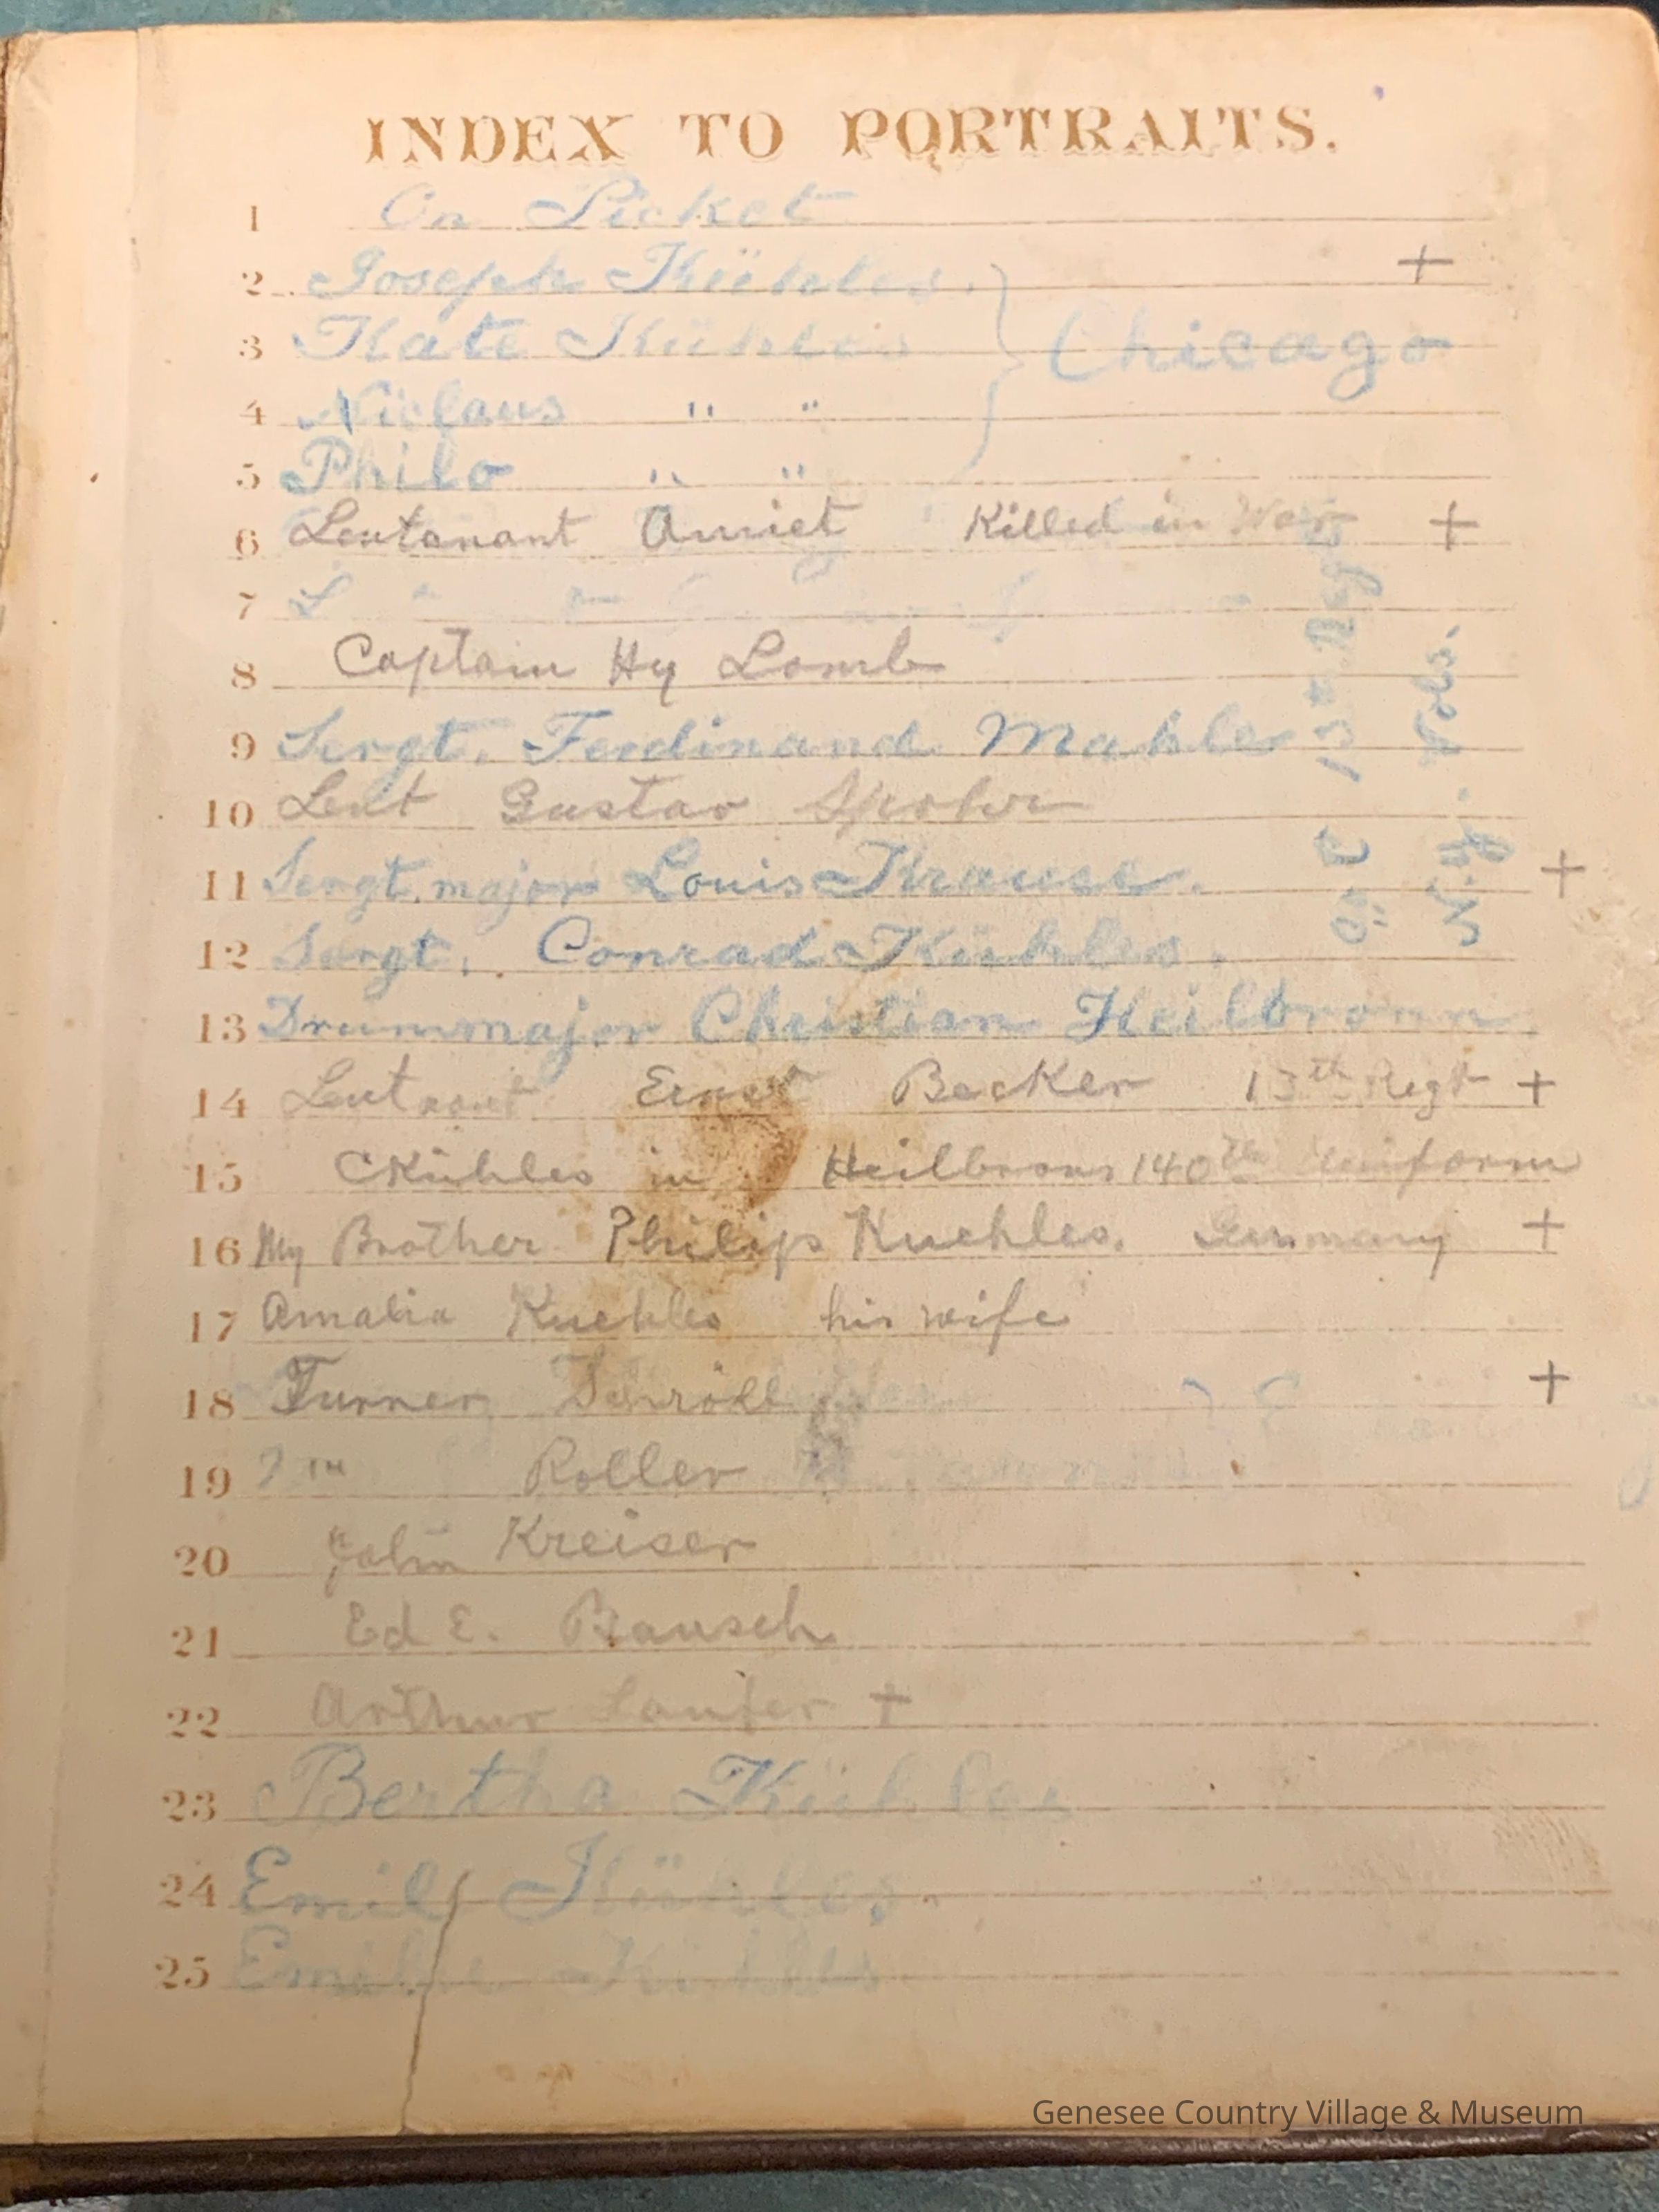 INDEX TO PORTRAITS.
1 On Picket
2 Joseph Kühles. +
3 Kate Kühles Chicago
4 Niclaus " "
5 Philo " "
6 Leutanant Amiet Killed in War +
7
8 Captain Hy Lomb
9 Sergt. Ferdinand Mahle
10 Leut Gustav Spohr
11 Sergt. major Louis Krause. +
12 Sergt. Conrad Kühles.
13 Drummajor Christian Heilbronn.
Co. C 13th Regt
N.Y. Vols.
14 Leutnant Ernst Becker 13th Regt +
15 CKühles in Heilbrons 140th Uniform
16 My Brother Philip Kuehles. Germany +
17 Amalia Kuehles his wife
18 Turner +
19 Roller
20 John Kreiser
21 Ed E. Bausch
22 Arthur +
23 Bertha Kühles
24 Emil Kühles.
25 Emilie Kühles
Genesee Country Village & Museum